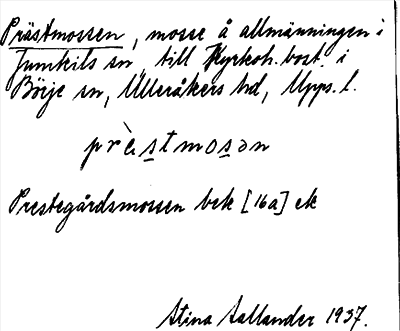 Prästmossen, mosse å allmänningen i
Jumkils sn, till Kyrkoh. bost. i
Börje sn, Ulleråkers hd, Upps. l.
prèstmosən
Prestegårdsmossen bek [16a] ek
Stina Aallander 1937.